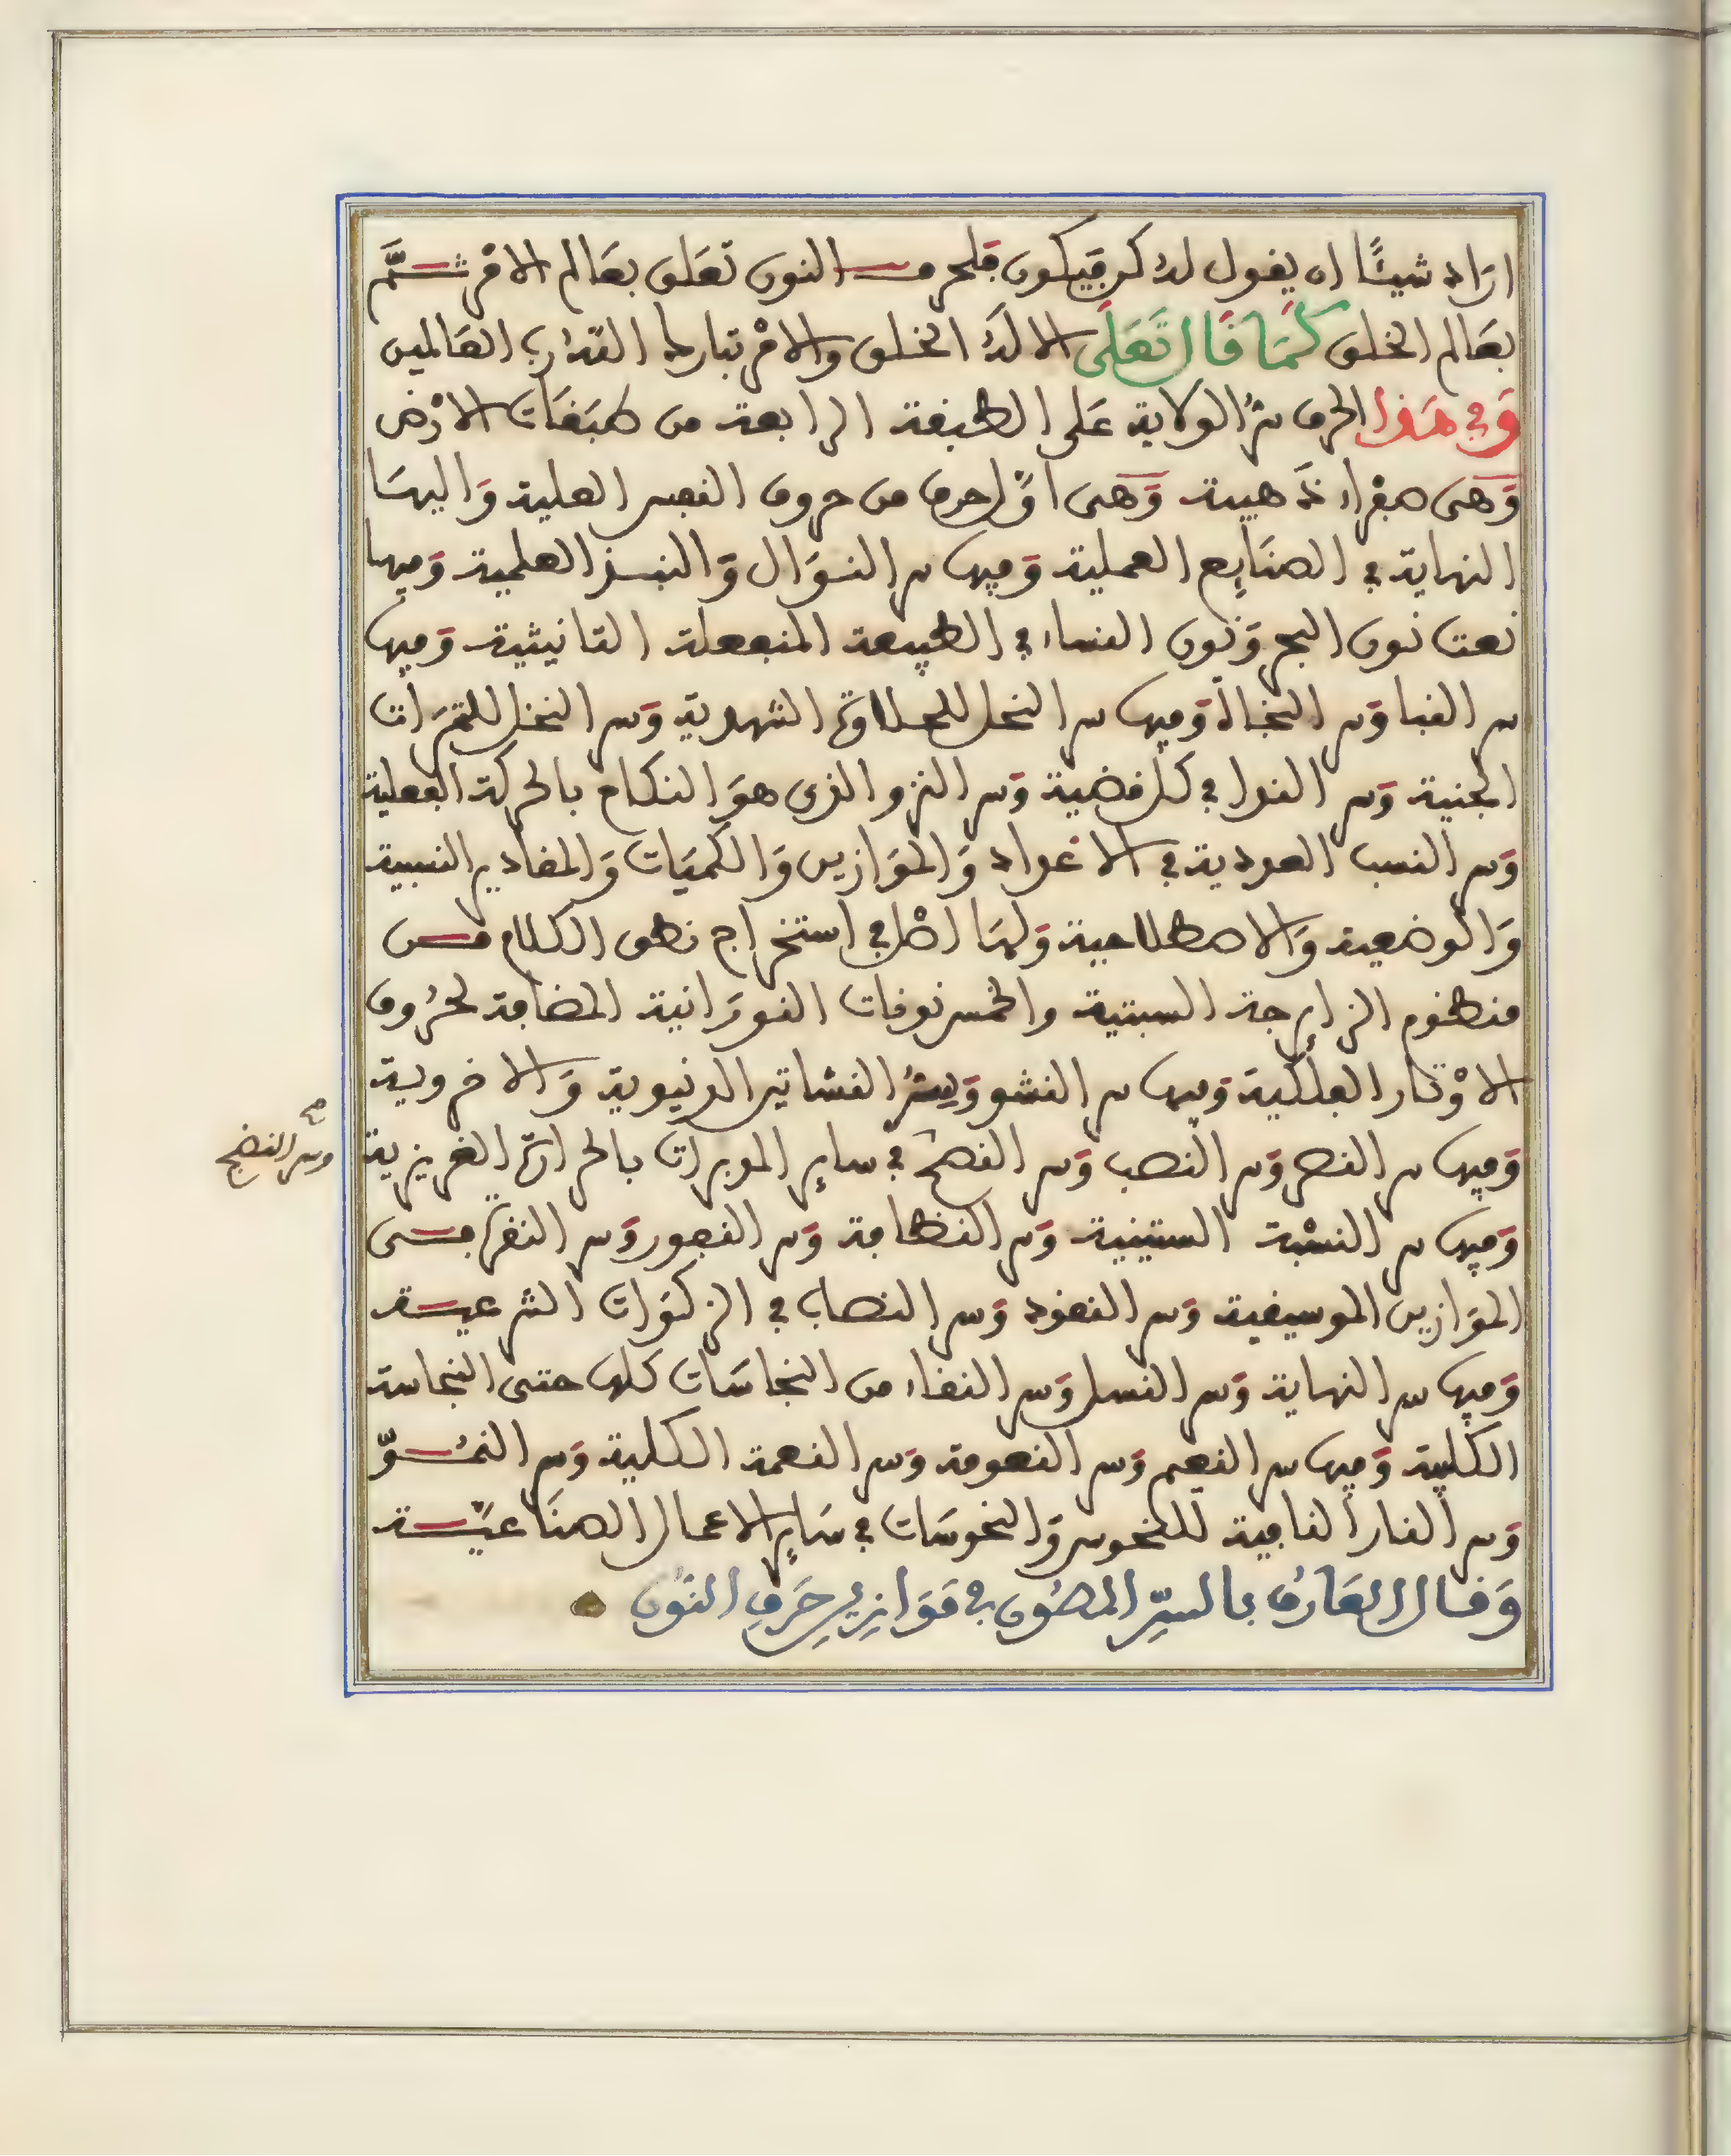 اراد شيئًا ان يقول له كن فيكون فلحرف النون تعلق بعالم الامر ثمَّ
بعَالم الخلق كَمَا قَالَ تَعَلَى الا لهُ الخلق والامْر تبارك اللهُ رب العَالمين
وَفِي هَذا الحرف سرُّ الولاية عَلى الطبقة الرابعة من طبَقَات الارْض
وَهى صفْراء ذَهبية وَهى اوَّل حرف من حروف النفس العلية وَاليهَا
النهاية في الصنَايع العملية وَفيها سر النوَال وَالنبذ العلمية وَفيها
نعت نون البحر وَنون النساء في الطبيعة المنفعلة التانيثية وَفيها
سر النبا وَسر النجاة وَفيها سر النحل للحلاوة الشهدية وَسر النخل للثمَرَات
الجنية وَسر النوا في كل قضية وَسر النزو الذى هوَ النكاح بالحركة الفعلية
وَسر النسب العددية في الاعْداد وَالموَازين وَالكميَات وَالمقادير النسبية
وَالوضعية وَالاصطلاحية وَلهَا اصْل في استخراج نطق الكلام من
منظوم الزايرجة السبتية والخمس نونات النورَانية المضافة لحرُوف
الاوْتار الفلكية وَفيها سر النشو وَسرُّ النشاتين الدنيوية وَالاخروية
وَفيها سر النصر وَسر النصب وَسر النصح في ساير المدبرات بالحرارة الغريزية
وسر النضج صح
وَفيها سر النسْبة الستينية وَسر النظافة وَسر النفور وَسر النقرة من
الموَازين الموسيقية وَسر النقود وَسر النصاب في الزكوَات الشرعية
وَفيها سر النهاية وَسر النسل وَسر النقاء من النجاسَات كلها حتى النجاسة
الكلبية وَفيها سر النعيم وَسر النعومة وَسر النعمة الكلية وَسر النمُوّ
وَسر النار النافية للنحوس وَالنحوسَات في سَاير الاعمال الصنَاعيَّة
وَقال العَارفُ بالسِّرِّ المصُون في مَوَازِينِ حَرفِ النُون